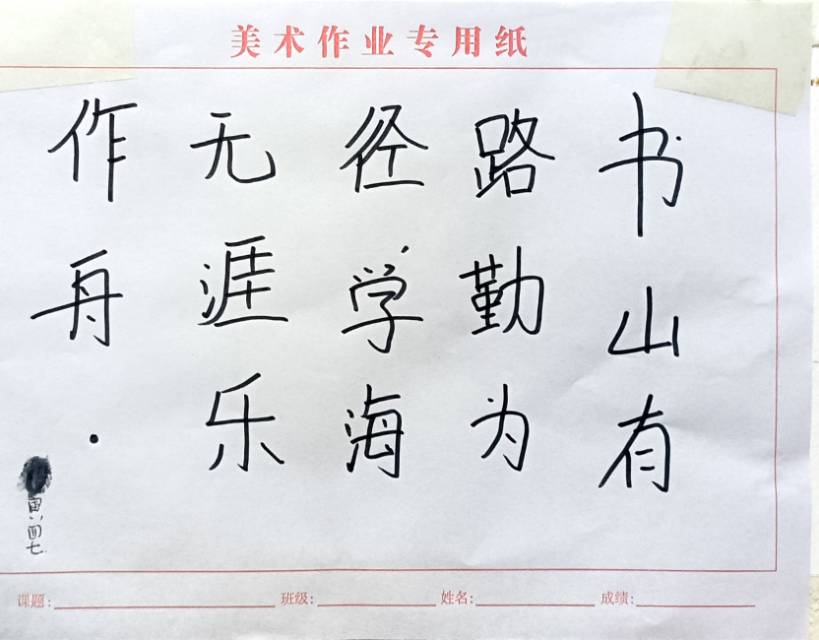 美术作业专用纸
书山有
路勤为
径学海
无涯乐
作舟.
课题: 班级: 姓名: 成绩: